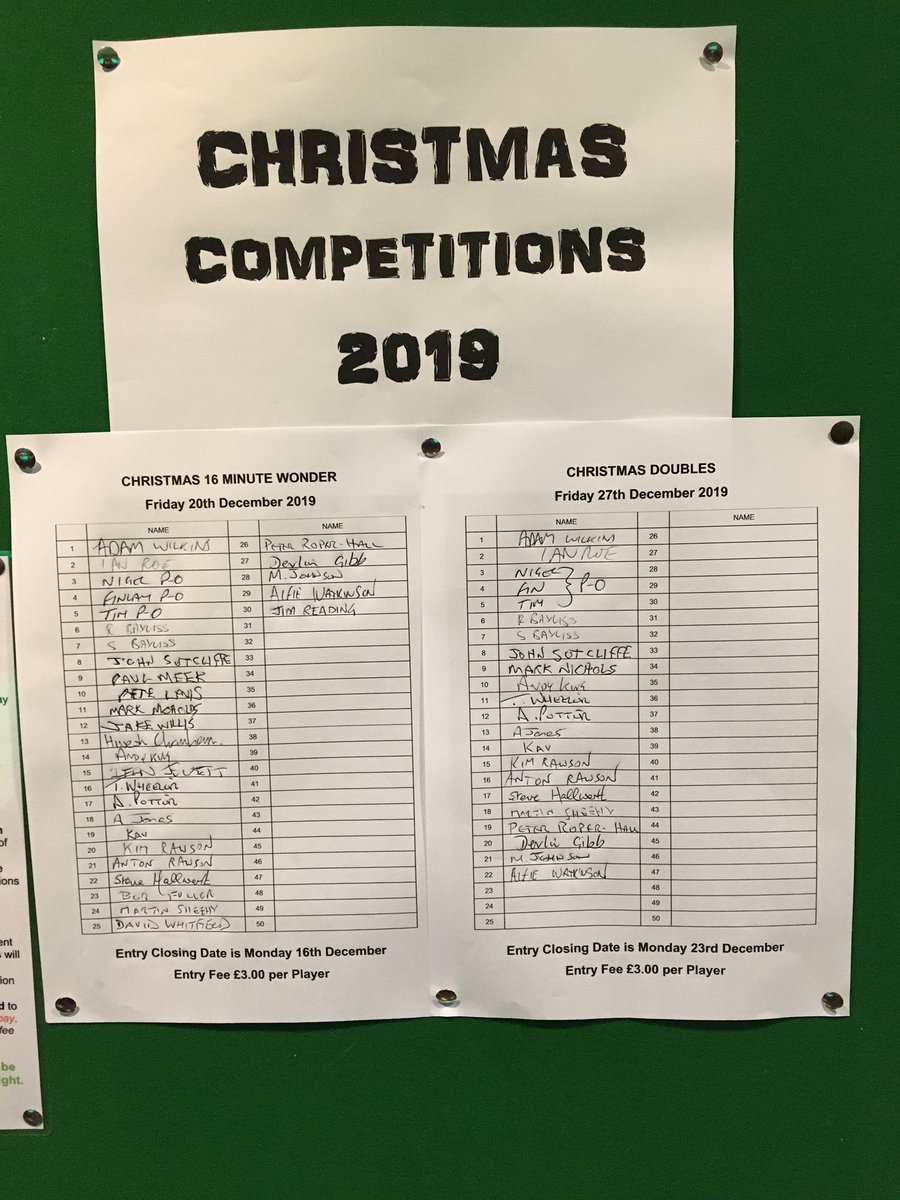 CHRISTMAS
COMPETITIONS
2019
CHRISTMAS 16 MINUTE WONDER
Friday 20th December 2019
NAME NAME
1 ADAM WILKINS 26 PETER ROPER-HALL
2 IAN ROE 27 Devlin Gibb
3 NIGEL P-O 28 M. JOHNSON
4 FINLAY P-O 29 ALFIE WATKINSON
5 TIM P-O 30 JIM READING
6 R BAYLISS 31
7 S BAYLISS 32
8 JOHN SUTCLIFFE 33
9 PAUL MEER 34
10 PETE LEWIS 35
11 MARK NICHOLS 36
12 JAKE WILLIS 37
13 38
14 ANDY KING 39
15 40
16 T. WHEELER 41
17 A. POTTER 42
18 A Jones 43
19 KAV 44
20 KIM RAWSON 45
21 ANTON RAWSON 46
22 Steve Hallworth 47
23 BOB FULLER 48
24 MARTIN SHEEHY 49
25 DAVID WHITFIELD 50
Entry Closing Date is Monday 16th December
Entry Fee £3.00 per Player
CHRISTMAS DOUBLES
Friday 27th December 2019
NAME NAME
1 ADAM WILKINS 26
2 IAN ROE 27
3 NIGEL 28
4 FIN } P-O 29
5 TIM 30
6 R BAYLISS 31
7 S BAYLISS 32
8 JOHN SUTCLIFFE 33
9 MARK NICHOLS 34
10 ANDY KING 35
11 T. WHEELER 36
12 A. POTTER 37
13 A Jones 38
14 KAV 39
15 KIM RAWSON 40
16 ANTON RAWSON 41
17 Steve Hallworth 42
18 MARTIN SHEEHY 43
19 PETER ROPER-HALL 44
20 Devlin Gibb 45
21 M. JOHNSON 46
22 ALFIE WATKINSON 47
23 48
24 49
25 50
Entry Closing Date is Monday 23rd December
Entry Fee £3.00 per Player
of
ions
ent
will
ion
d to
pay,
fee
be
ight.